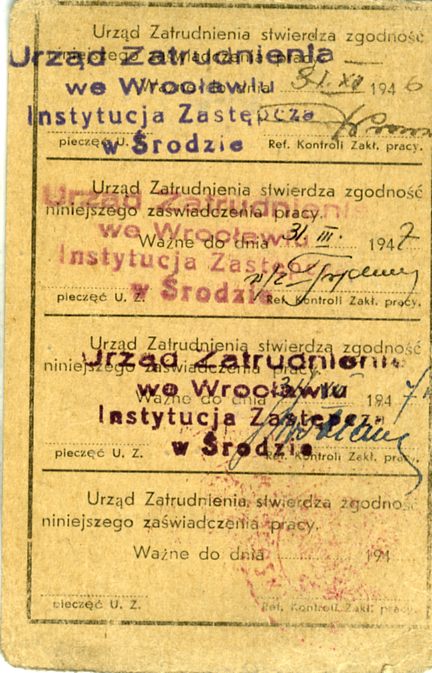 Urząd Zatrudnienia stwierdza zgodność
niniejszego zaświadczenia pracy.
Urząd Zatrudnienia
we Wrocławiu
Instytucja Zastępcza
w Środzie
Ważne do dnia 31. XII 1946
pieczęć U. Z. Ref. Kontroli Zakł. pracy.
Urząd Zatrudnienia stwierdza zgodność
niniejszego zaświadczenia pracy.
Urząd Zatrudnienia
we Wrocławiu
Instytucja Zastępcza
w Środzie
Ważne do dnia 31. III. 1947
pieczęć U. Z. Ref. Kontroli Zakł. pracy.
Urząd Zatrudnienia stwierdza zgodność
niniejszego zaświadczenia pracy.
Urząd Zatrudnienia
we Wrocławiu
Instytucja Zastępcza
w Środzie
Ważne do dnia 1947
pieczęć U. Z. Ref. Kontroli Zakł. pracy.
Urząd Zatrudnienia stwierdza zgodność
niniejszego zaświadczenia pracy.
Ważne do dnia 194
pieczęć U. Z. Ref. Kontroli Zakł. pracy.